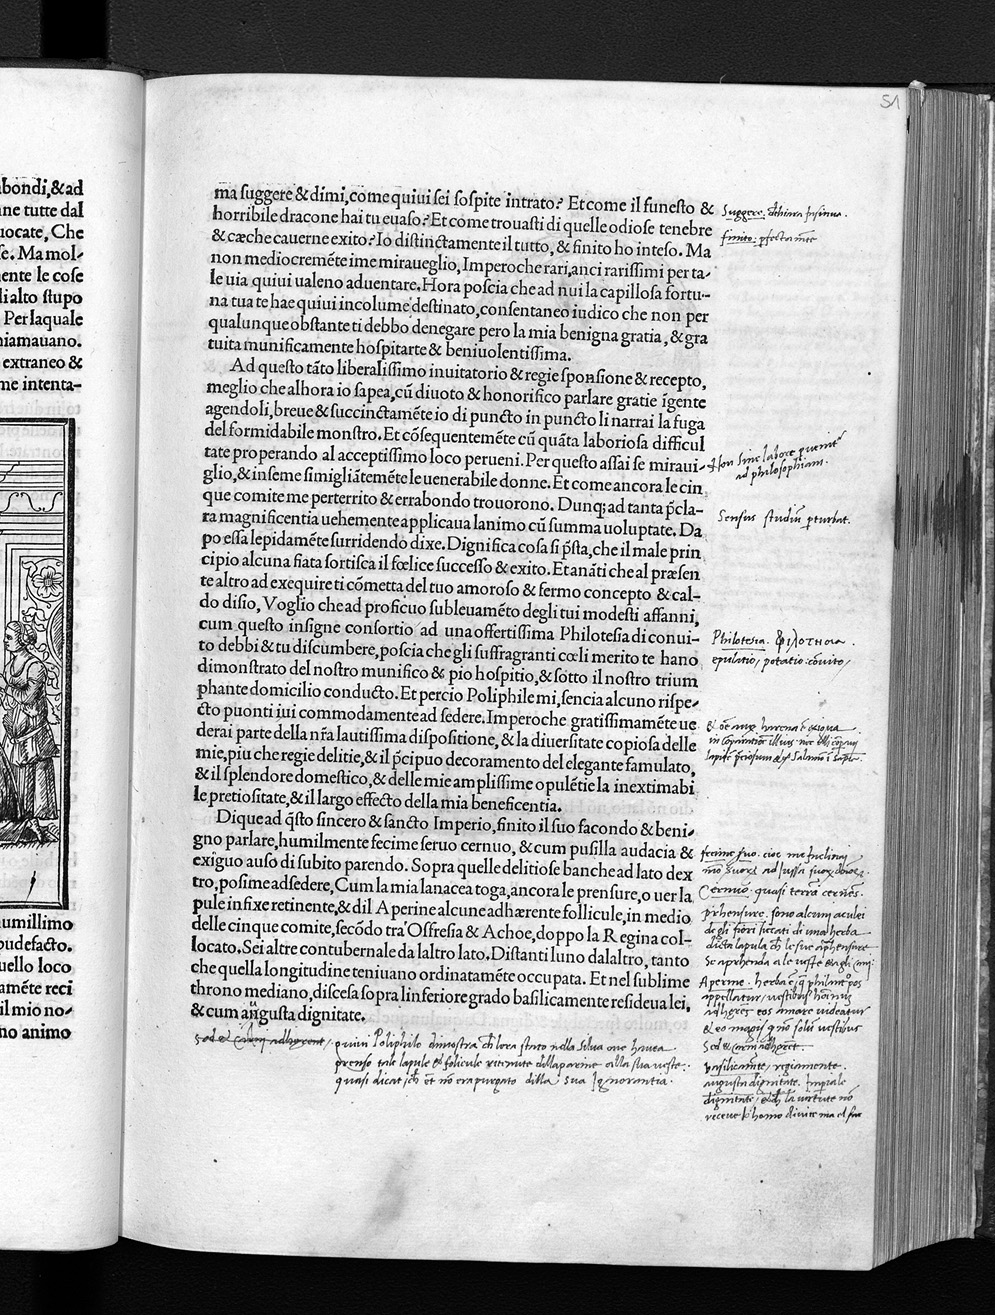 abondi,&ad
nne tutte dal
uocate, Che
se. Ma mol-
mente le cose
di alto stupo
Per laquale
hiamauano.
extraneo &
me intenta-
humillimo
pudefacto.
uello loco
amẽte reci
il mio no-
no animo
51
ma suggere & dimi, come quiui sei sospite intrato? Et come il funesto &
horribile dracone hai tu euaso? Et come trouasti di quelle odiose tenebre
& cæche cauerne exito? Io distinctamente il tutto, & finito ho inteso. Ma
non mediocremẽte ime miraueglio, Imperoche rari, anci rarissimi per ta-
le uia quiui ualeno aduentare. Hora poscia che ad nui la capillosa fortu-
na tua te hae quiui incolume destinato, consentaneo iudico che non per
qualunque obstante ti debbo denegare pero la mia benigna gratia, & gra
tuita munificamente hospitarte & beniuolentissima.
Ad questo tãto liberalissimo inuitatorio & regie sponsione & recepto,
meglio che alhora io sapea, cũ diuoto & honorifico parlare gratie ĩgente
agendoli, breue & succinctamẽte io di puncto in puncto li narrai la fuga
del formidabile monstro. Et cõsequentemẽte cũ quãta laboriosa difficul
tate properando al acceptissimo loco perueni. Per questo assai se miraui-
glio, & inseme simigliãtemẽte le uenerabile donne. Et come ancora le cin
que comite me perterrito & errabondo trouorono. Dunq; ad tanta p̃cla-
ra magnificentia uehemente applicaua lanimo cũ summa uoluptate. Da
po essa lepidamẽte surridendo dixe. Dignifica cosa si p̃sta, che il male prin
cipio alcuna fiata sortisca il fœlice successo & exito. Et anãti che al præsen
te altro ad exequire ti cõmetta del tuo amoroso & fermo concepto & cal-
do disio, Voglio che ad proficuo subleuamẽto degli tui modesti affanni,
cum questo insigne consortio ad una offertissima Philotesia di conui-
to debbi & tu discumbere, poscia che gli suffragranti cœli merito te hano
dimonstrato del nostro munifico & pio hospitio, & sotto il nostro trium
phante domicilio conducto. Et percio Poliphile mi, sencia alcuno rispe-
cto puonti iui commodamente ad sedere. Imperoche gratissimamẽte ue
derai parte della nr̃a lautissima dispositione, & la diuersitate copiosa delle
mie, piu che regie delitie, & il p̃cipuo decoramento del elegante famulato,
& il splendore domestico, & delle mie amplissime opulẽtie la inextimabi
le pretiositate, & il largo effecto della mia beneficentia.
Dique ad q̃sto sincero & sancto Imperio, finito il suo facondo & beni-
gno parlare, humilmente fecime seruo cernuo, & cum pusilla audacia &
exiguo auso di subito parendo. Sopra quelle delitiose banche ad lato dex
tro, posime ad sedere, Cum la mia lanacea toga, ancora le prensure, o uer la
pule infixe retinente, & dil Aperine alcune adhærente follicule, in medio
delle cinque comite, secõdo tra Osfresia & Achoe, doppo la Regina col-
locato. Sei altre contubernale da laltro lato. Distanti luno dalaltro, tanto
che quella longitudine teniuano ordinatamẽte occupata. Et nel sublime
throno mediano, discesa sopra linferiore grado basilicamente resideua lei,
& cum ãugusta dignitate.
Suggere. chiara insinua.
finito. perfectamẽte
Non sine labore peruenit
ad philosophiam.
Sensus studiũ pturbat.
Philotesia. φιλοτησια
epulatio, potatio. cõuito,
Cernuo. quasi terrã cernẽs.
prẽhensure. sono alcuni aculei
de gli fiori siccati di una herba
Aperine. herba
appellatur, uestibus hominis
et eo magis quo solũ uestibus
basilicamẽte, regiamente.
augusta dignitate. Imperiale
dignitate,
quiui Poliphilo dimostra
prenso tale lapule et folicule ritenute dilla aparine alla sua ueste.
quasi dicat, che et nõ era purgato dilla sua Ignorantia.